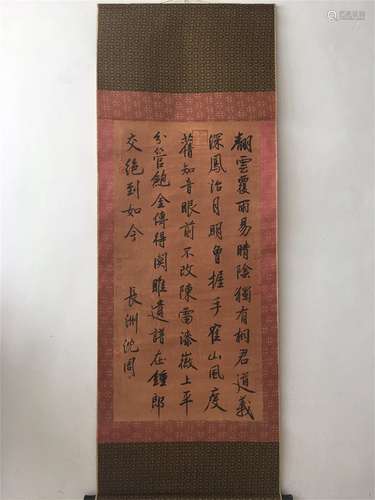 翻雲覆雨易晴陰獨有桐君道義
深鳳沼月明曾握手霍山風度
舊知音眼前不改陳雷漆嶶上平
分管鮑金傳得関雎遺譜在鍾郎
交絕到如今
長洲沈周